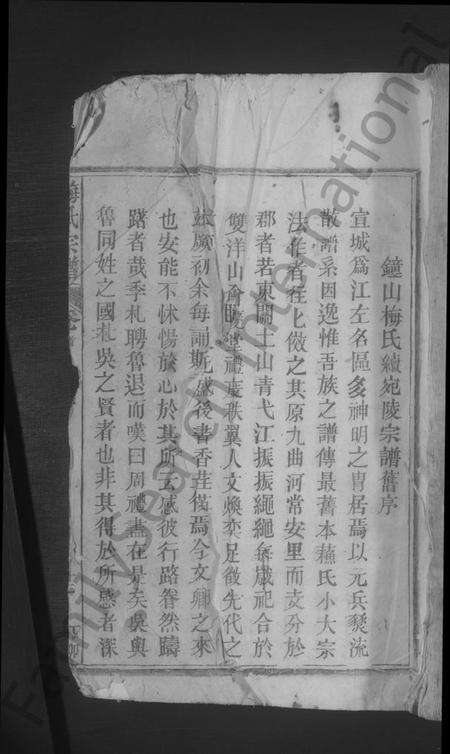 鐘山梅氏續宛陵宗譜舊序
宣城爲江左名區多神明之冑居焉以元兵燹流
散譜系因逸惟吾族之譜傳最舊本蘇氏小大宗
法作者往化倣之其原九曲河常安里而支分於
郡者若東關土山青弋江振振繩繩每歲祀合於
雙洋山會慶堂禮度秩翼人文煥奕足徵先代之
並厥初余每誦斯
後書香
焉今文卿之來
也安能不怵惕於心於其所云感彼行路眷然躊
躇者哉季札聘魯退而嘆曰周禮盡在是矣吳與
魯同姓之國札吳之賢者也非其得於所感者深
梅氏宗譜
FamilySearch International